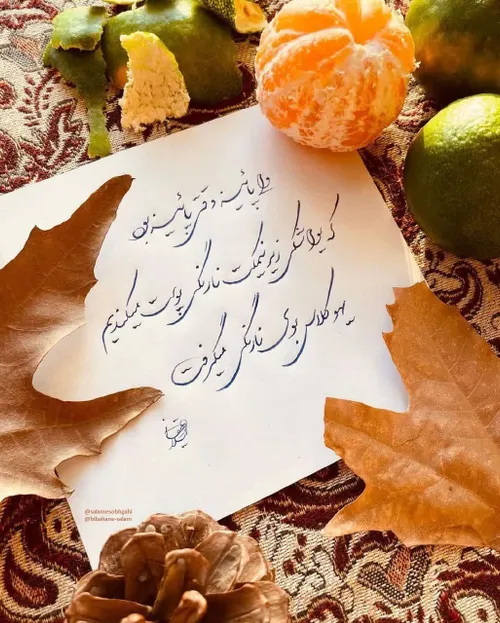 پائیز وقتی پائیز بود
که یواشکی زیر نیمکت نارنگی پوست میکندیم
یهو کلاس بوی نارنگی میگرفت
@sabmesobhgahi
@bibahane-salam